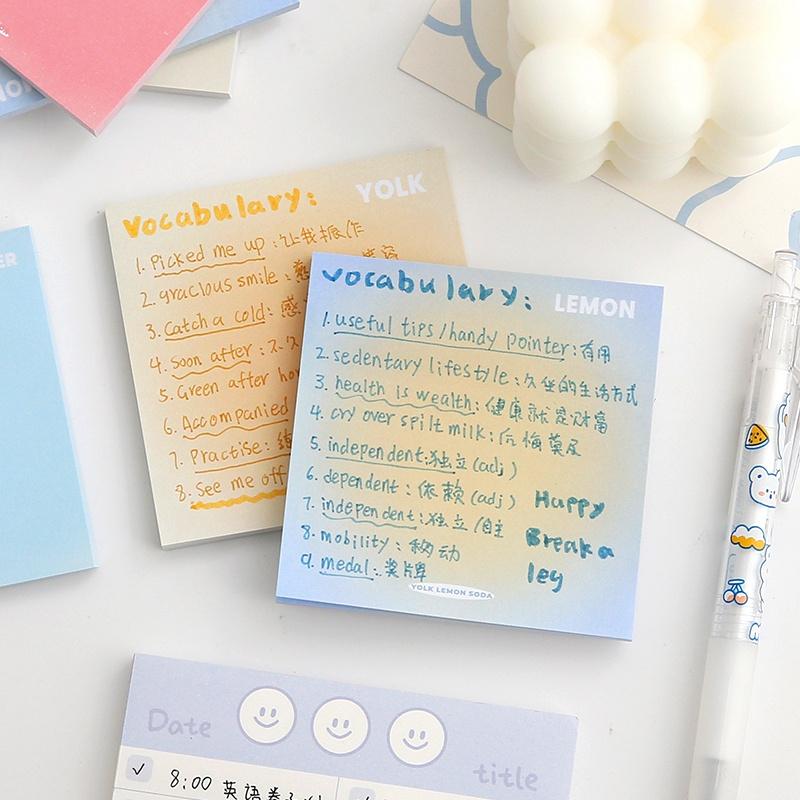 YOLK
vocabulary:
1. Picked me up : 让我振作
2. gracious smile :
3. Catch a cold : 感
4. soon after : 不久
5. Green after
6. Accompanied
7. Practise : 练
8. See me off
LEMON
vocabulary:
1. useful tips / handy pointer : 有用
2. sedentary lifestyle : 久坐的生活方式
3. health is wealth : 健康就是财富
4. cry over spilt milk : 后悔莫及
5. independent : 独立 (adj)
6. dependent : 依赖 (adj)
7. independent : 独立 / 自主
8. mobility : 移动
9. medal : 奖牌
Happy
Break a
leg
YOLK LEMON SODA
ER
Date
title
8:00 英语卷